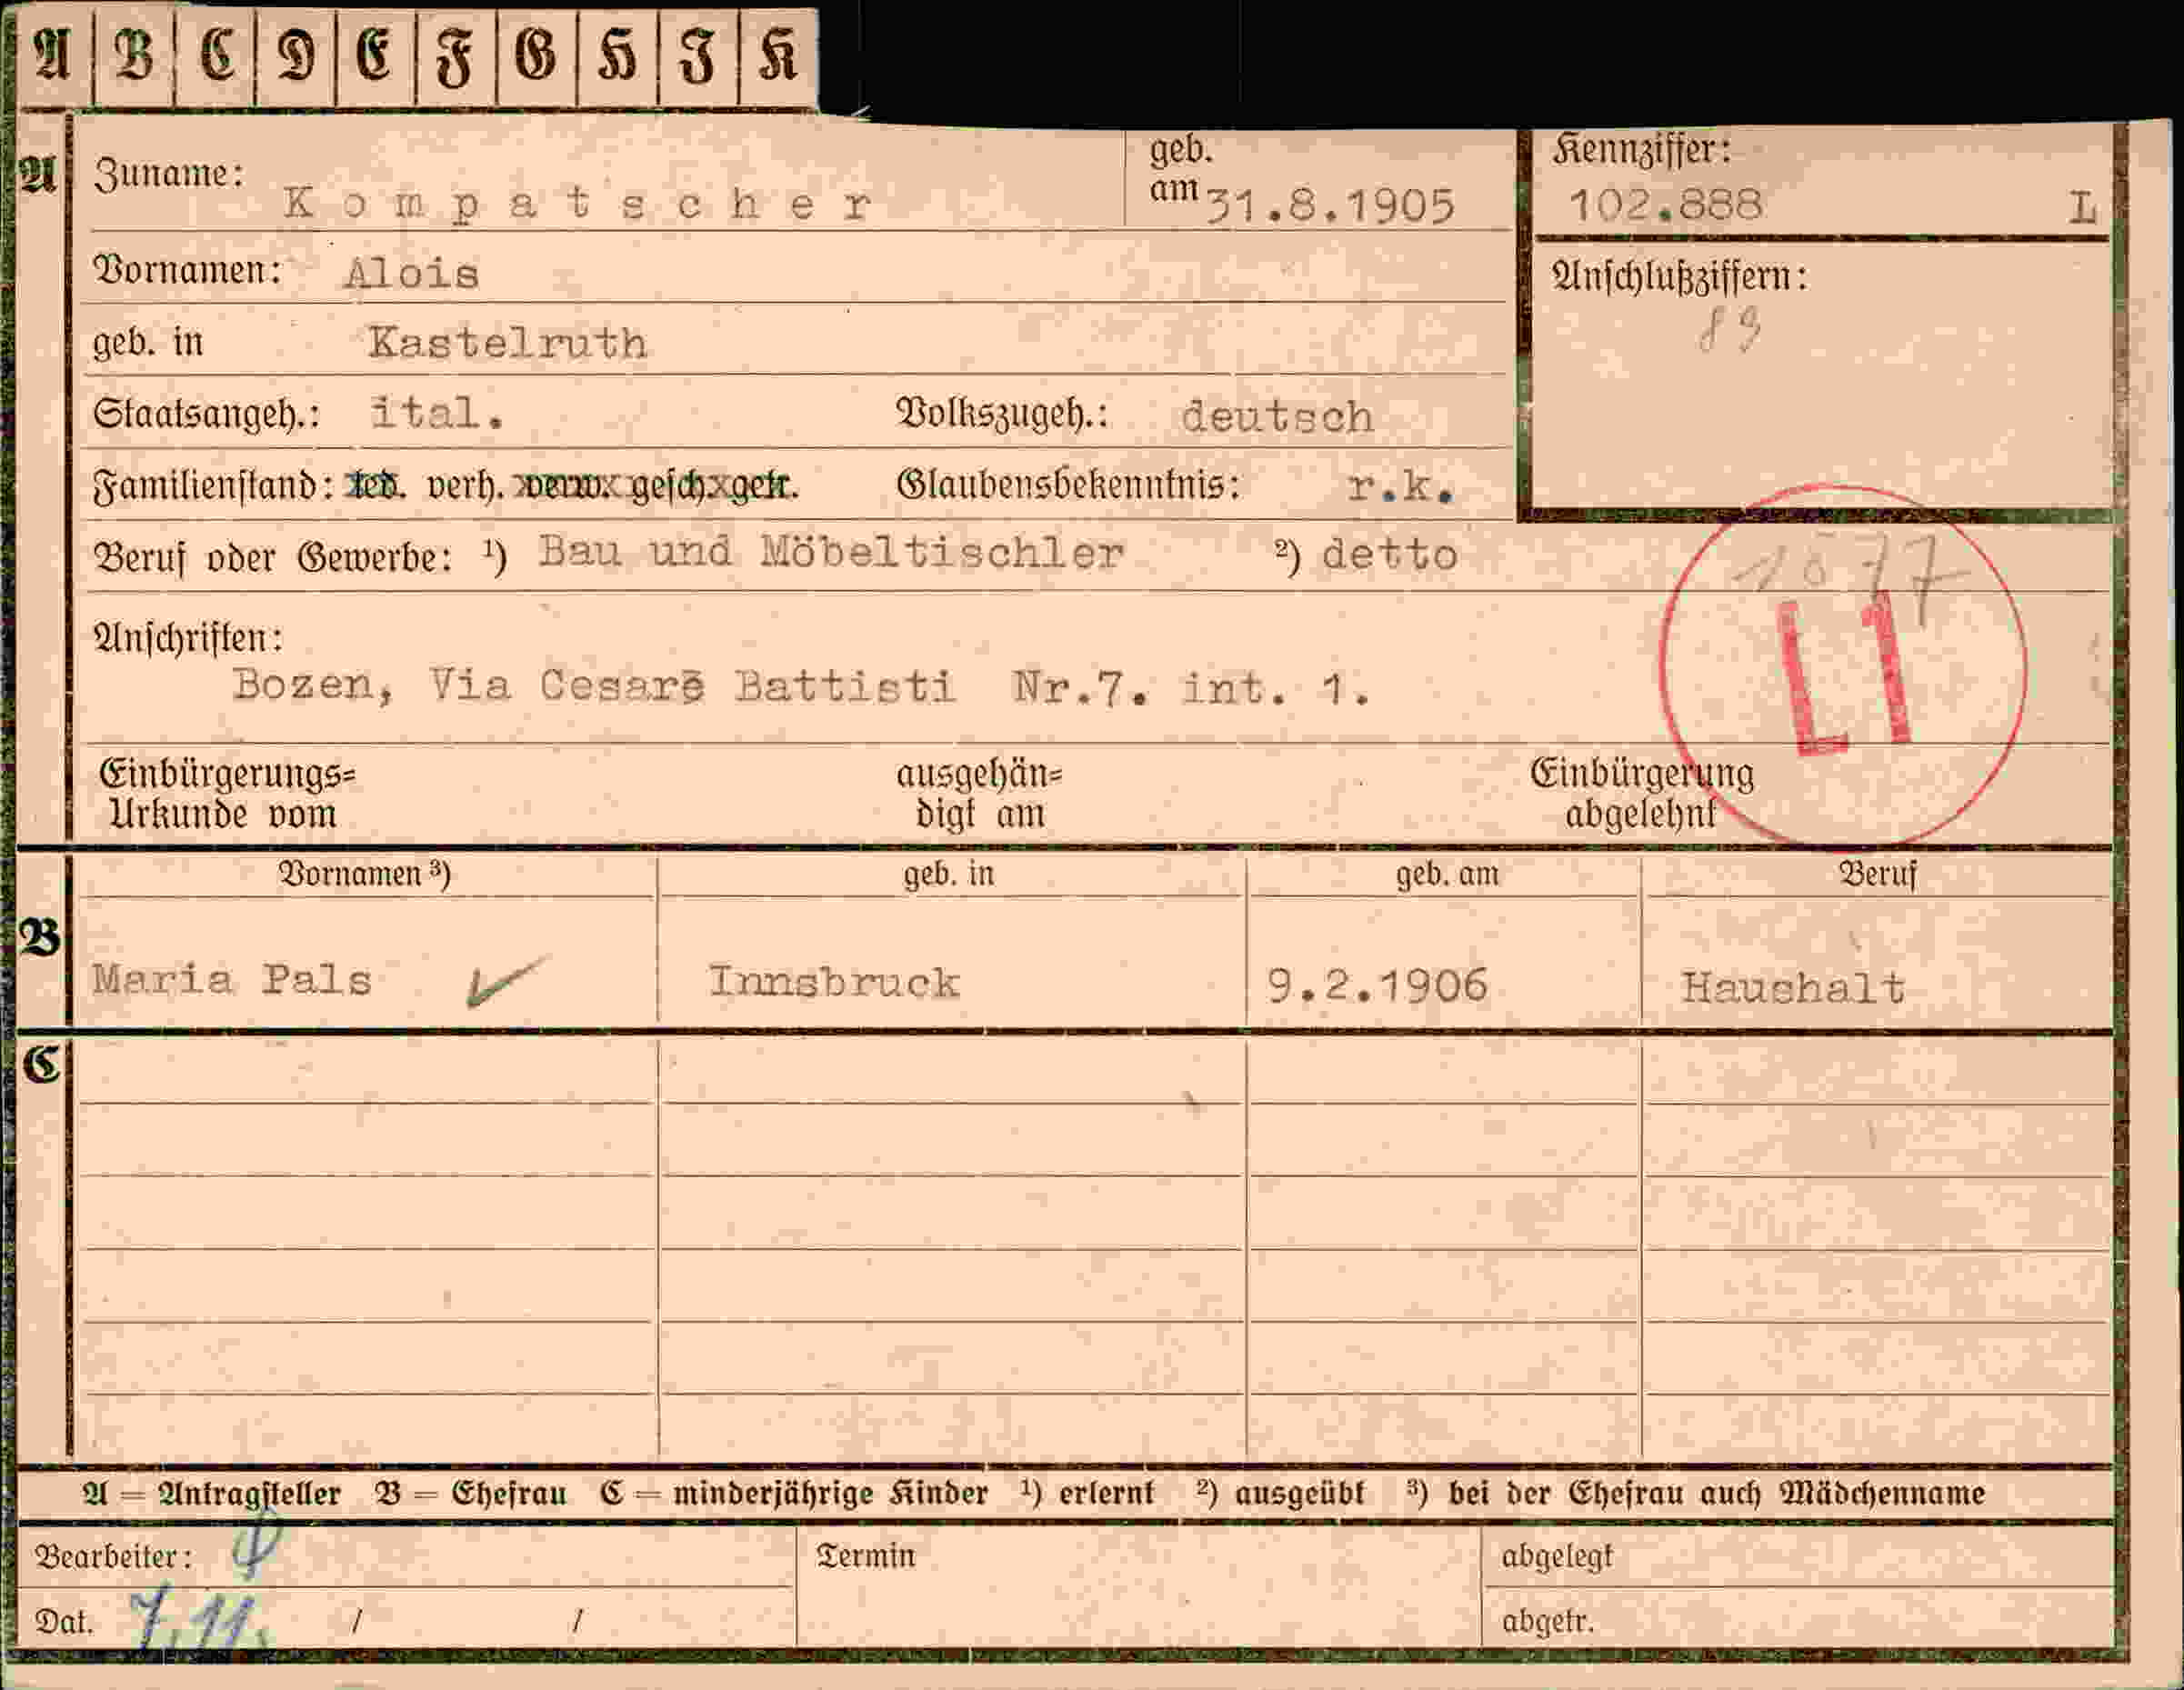 A B C D E F G H I K
A Zuname: Kompatscher geb. am 31.8.1905 Kennziffer: 102.888 L
Vornamen: Alois Anschlußziffern:
89
geb. in Kastelruth
Staatsangeh.: ital. Volkszugeh.: deutsch
Familienstand: led. verh. verw. gesch. getr. Glaubensbekenntnis: r.k.
Beruf oder Gewerbe: ¹) Bau und Möbeltischler ²) detto
1077
L1
Anschriften:
Bozen, Via Cesare Battisti Nr.7. int. 1.
Einbürgerungs= ausgehän= Einbürgerung
Urkunde vom digt am abgelehnt
Vornamen ³) geb. in geb. am Beruf
B Maria Pals Innsbruck 9.2.1906 Haushalt
C
A = Antragsteller B = Ehefrau C = minderjährige Kinder ¹) erlernt ²) ausgeübt ³) bei der Ehefrau auch Mädchenname
Bearbeiter: Termin abgelegt
Dat. 7.11. / / abgetr.